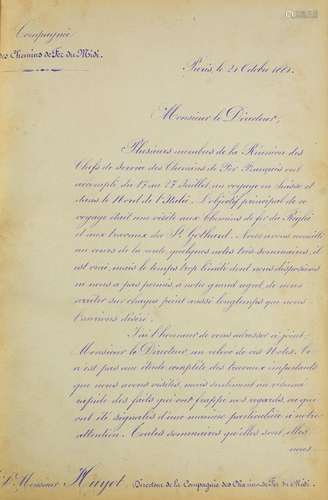 Compagnie
des Chemins de Fer du Midi.
Paris, le 21 Octobre 1881.
Monsieur le Directeur,
Plusieurs membres de la Réunion des
Chefs de Service des Chemins de Fer Français ont
accompli, du 17 au 27 Juillet, un voyage en Suisse et
dans le Nord de l'Italie. L'objet principal de ce
voyage était une visite aux Chemins de fer du Righi
et aux travaux du St Gothard. Nous avons recueilli
au cours de la route, quelques notes très sommaires, il
est vrai, mais le temps trop limité dont nous disposions
ne nous a pas permis, à notre grand regret, de nous
arrêter sur chaque point aussi longtemps que nous
l'aurions désiré.
J'ai l'honneur de vous adresser ci-joint
Monsieur le Directeur, un relevé de ces Notes. Ce
n'est pas une étude complète des travaux importants
que nous avons visités, mais seulement un résumé
rapide des faits qui ont frappé nos regards, ou qui
ont été signalés d'une manière particulière à notre
attention. Toutes sommaires qu'elles sont, elles
nous
Monsieur Huyot Directeur de la Compagnie des Chemins de Fer du Midi.